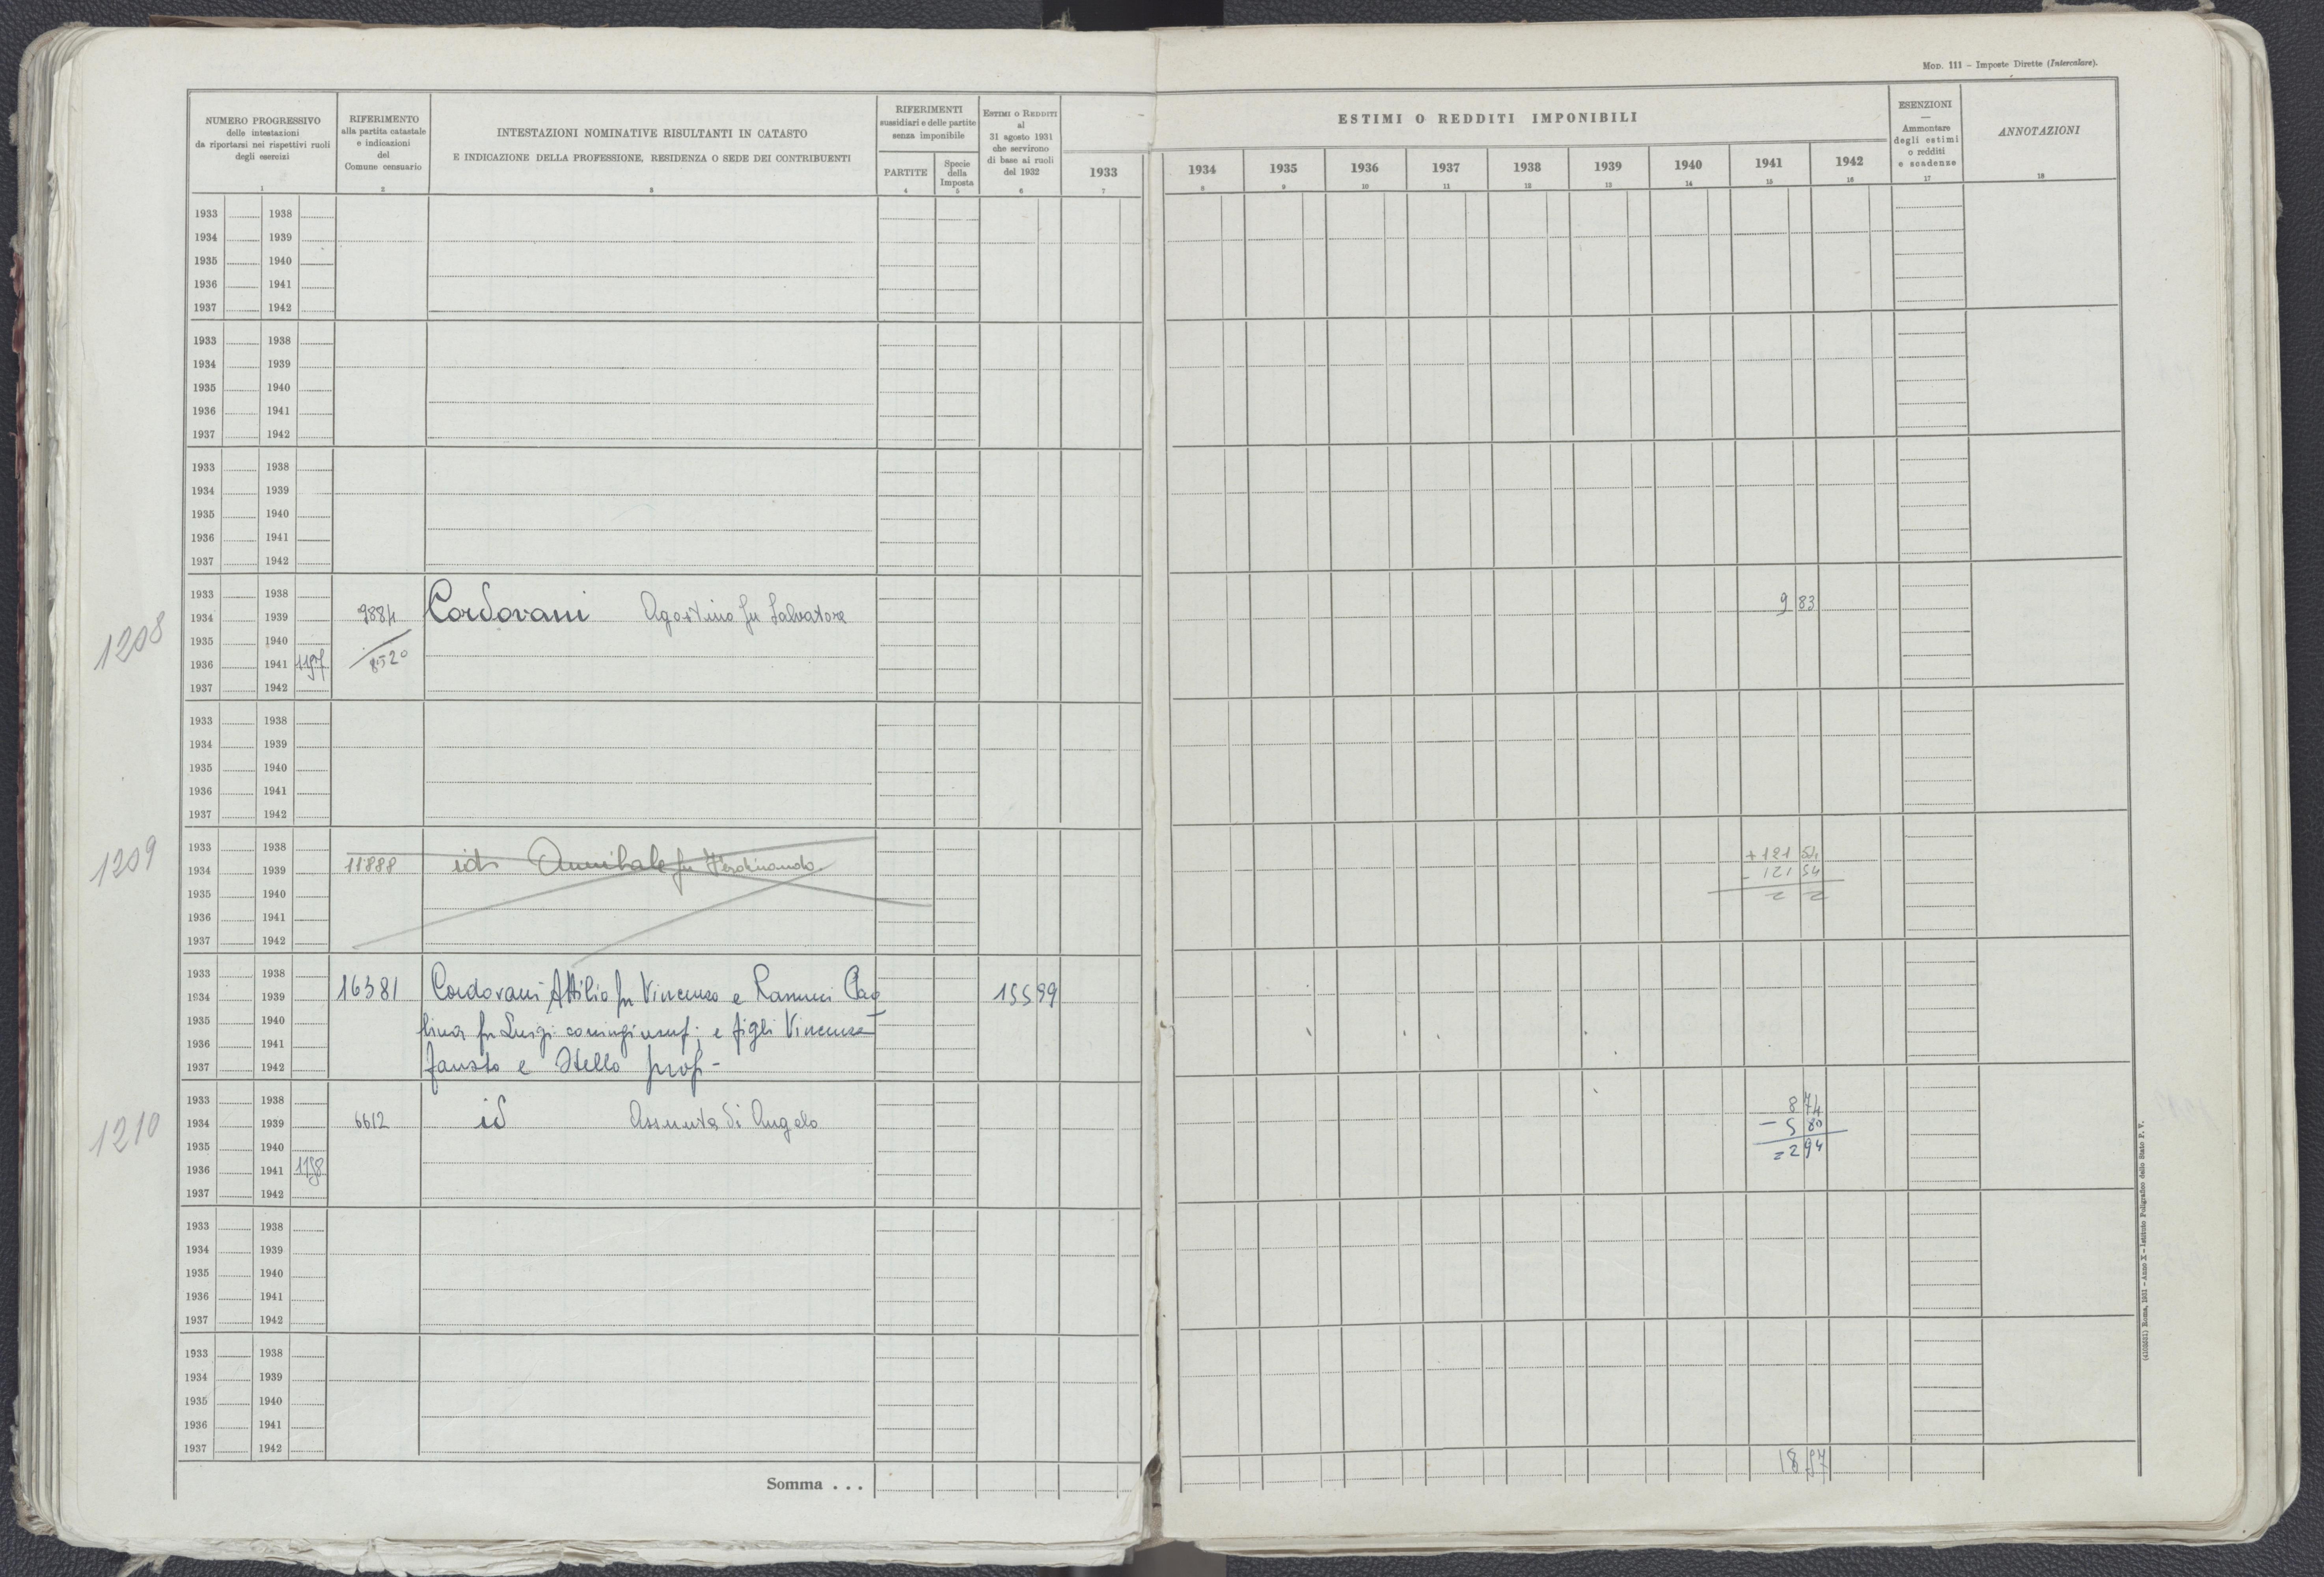 Mod. 111 – Imposte Dirette (Intercalare).
NUMERO PROGRESSIVO
delle intestazioni
da riportarsi nei rispettivi ruoli
degli esercizi
1
RIFERIMENTO
alla partita catastale
e indicazioni
del
Comune censuario
2
INTESTAZIONI NOMINATIVE RISULTANTI IN CATASTO
E INDICAZIONE DELLA PROFESSIONE, RESIDENZA O SEDE DEI CONTRIBUENTI
3
RIFERIMENTI
sussidiari e delle partite
senza imponibile
PARTITE
4
Specie
della
Imposta
5
Estimi o Redditi
al
31 agosto 1931
che servirono
di base ai ruoli
del 1932
6
ESTIMI O REDDITI IMPONIBILI
1933 1934 1935 1936 1937 1938 1939 1940 1941 1942
7 8 9 10 11 12 13 14 15 16
ESENZIONI
—
Ammontare
degli estimi
o redditi
e scadenze
17
ANNOTAZIONI
18
1933 1938
1934 1939
1935 1940
1936 1941
1937 1942
1933 1938
1934 1939
1935 1940
1936 1941
1937 1942
1933 1938
1934 1939
1935 1940
1936 1941
1937 1942
1208
1933 1938
1934 1939 9884 Cordovani Agostino fu Salvatore 9 83
1935 1940
1936 1941 1197 8520
1937 1942
1933 1938
1934 1939
1935 1940
1936 1941
1937 1942
1209
1933 1938 + 121 54
1934 1939 11888 id Annibale fu Ferdinando - 121 54
1935 1940 = =
1936 1941
1937 1942
1933 1938
1934 1939 16381 Cordovani Attilio fu Vincenzo e Ranucci Pao 155 99
1935 1940 lina fu Luigi coniugi usuf. e figli Vincenzo
1936 1941
1937 1942 Fausto e Stello prop -
1210
1933 1938 8 74
1934 1939 6612 id Assunta di Angelo - 5 80
1935 1940 = 2 94
1936 1941 1198
1937 1942
1933 1938
1934 1939
1935 1940
1936 1941
1937 1942
1933 1938
1934 1939
1935 1940
1936 1941
1937 1942
Somma . . . 18 57
(4103651) Roma, 1931 – Anno X – Istituto Poligrafico dello Stato P. V.